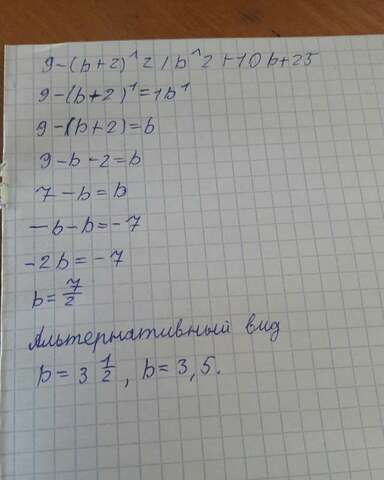 9-(b+2)^2/b^2+10b+25
9-(b+2)^1=1b^1
9-(b+2)=b
9-b-2=b
7-b=b
-b-b=-7
-2b=-7
b=7/2
Альтернативный вид
b=3 1/2, b=3,5.